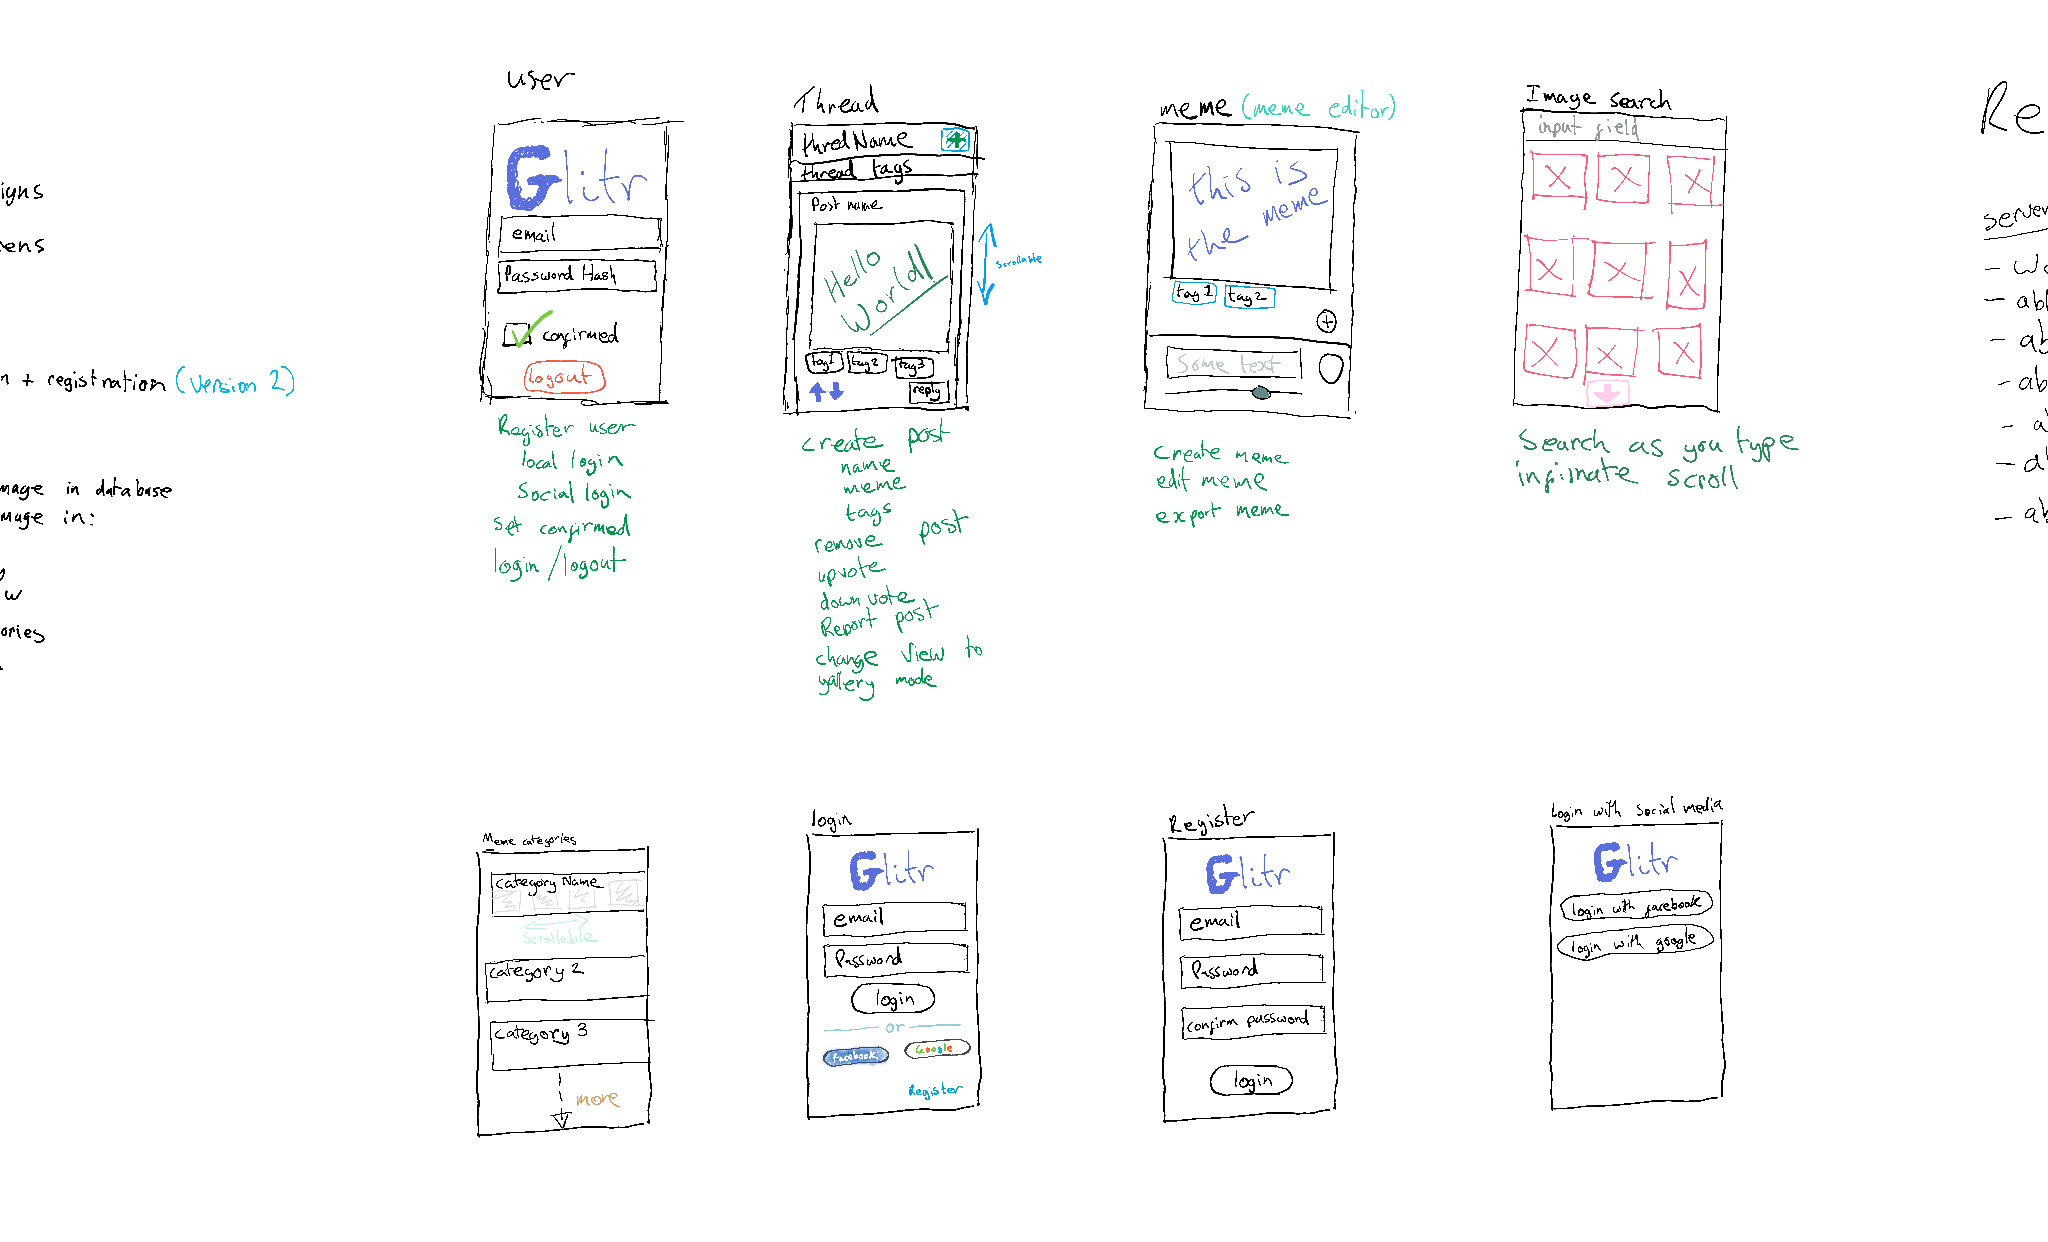 igns
ens
n + registration (version 2)
mage in database
mage in:
w
ories
user
Glitr
email
Password Hash
confirmed
logout
Register user
local login
Social login
set confirmed
login/logout
Thread
thredName
thread tags
Post name
Hello
World!
Scrollable
tag1 tag2 tag3
reply
create post
name
meme
tags
remove post
upvote
downvote
Report post
change view to
gallery mode
meme (meme editor)
this is
the meme
tag1 tag2
Some text
create meme
edit meme
export meme
Image search
input field
Search as you type
infinate scroll
Re
server
- Wo
- abl
- ab
- ab
- a
- ab
- ab
Meme categories
category Name
Scrollable
category 2
category 3
more
login
Glitr
email
Password
login
or
facebook Google
Register
Register
Glitr
email
Password
confirm password
login
Login with Social media
Glitr
login with facebook
login with google